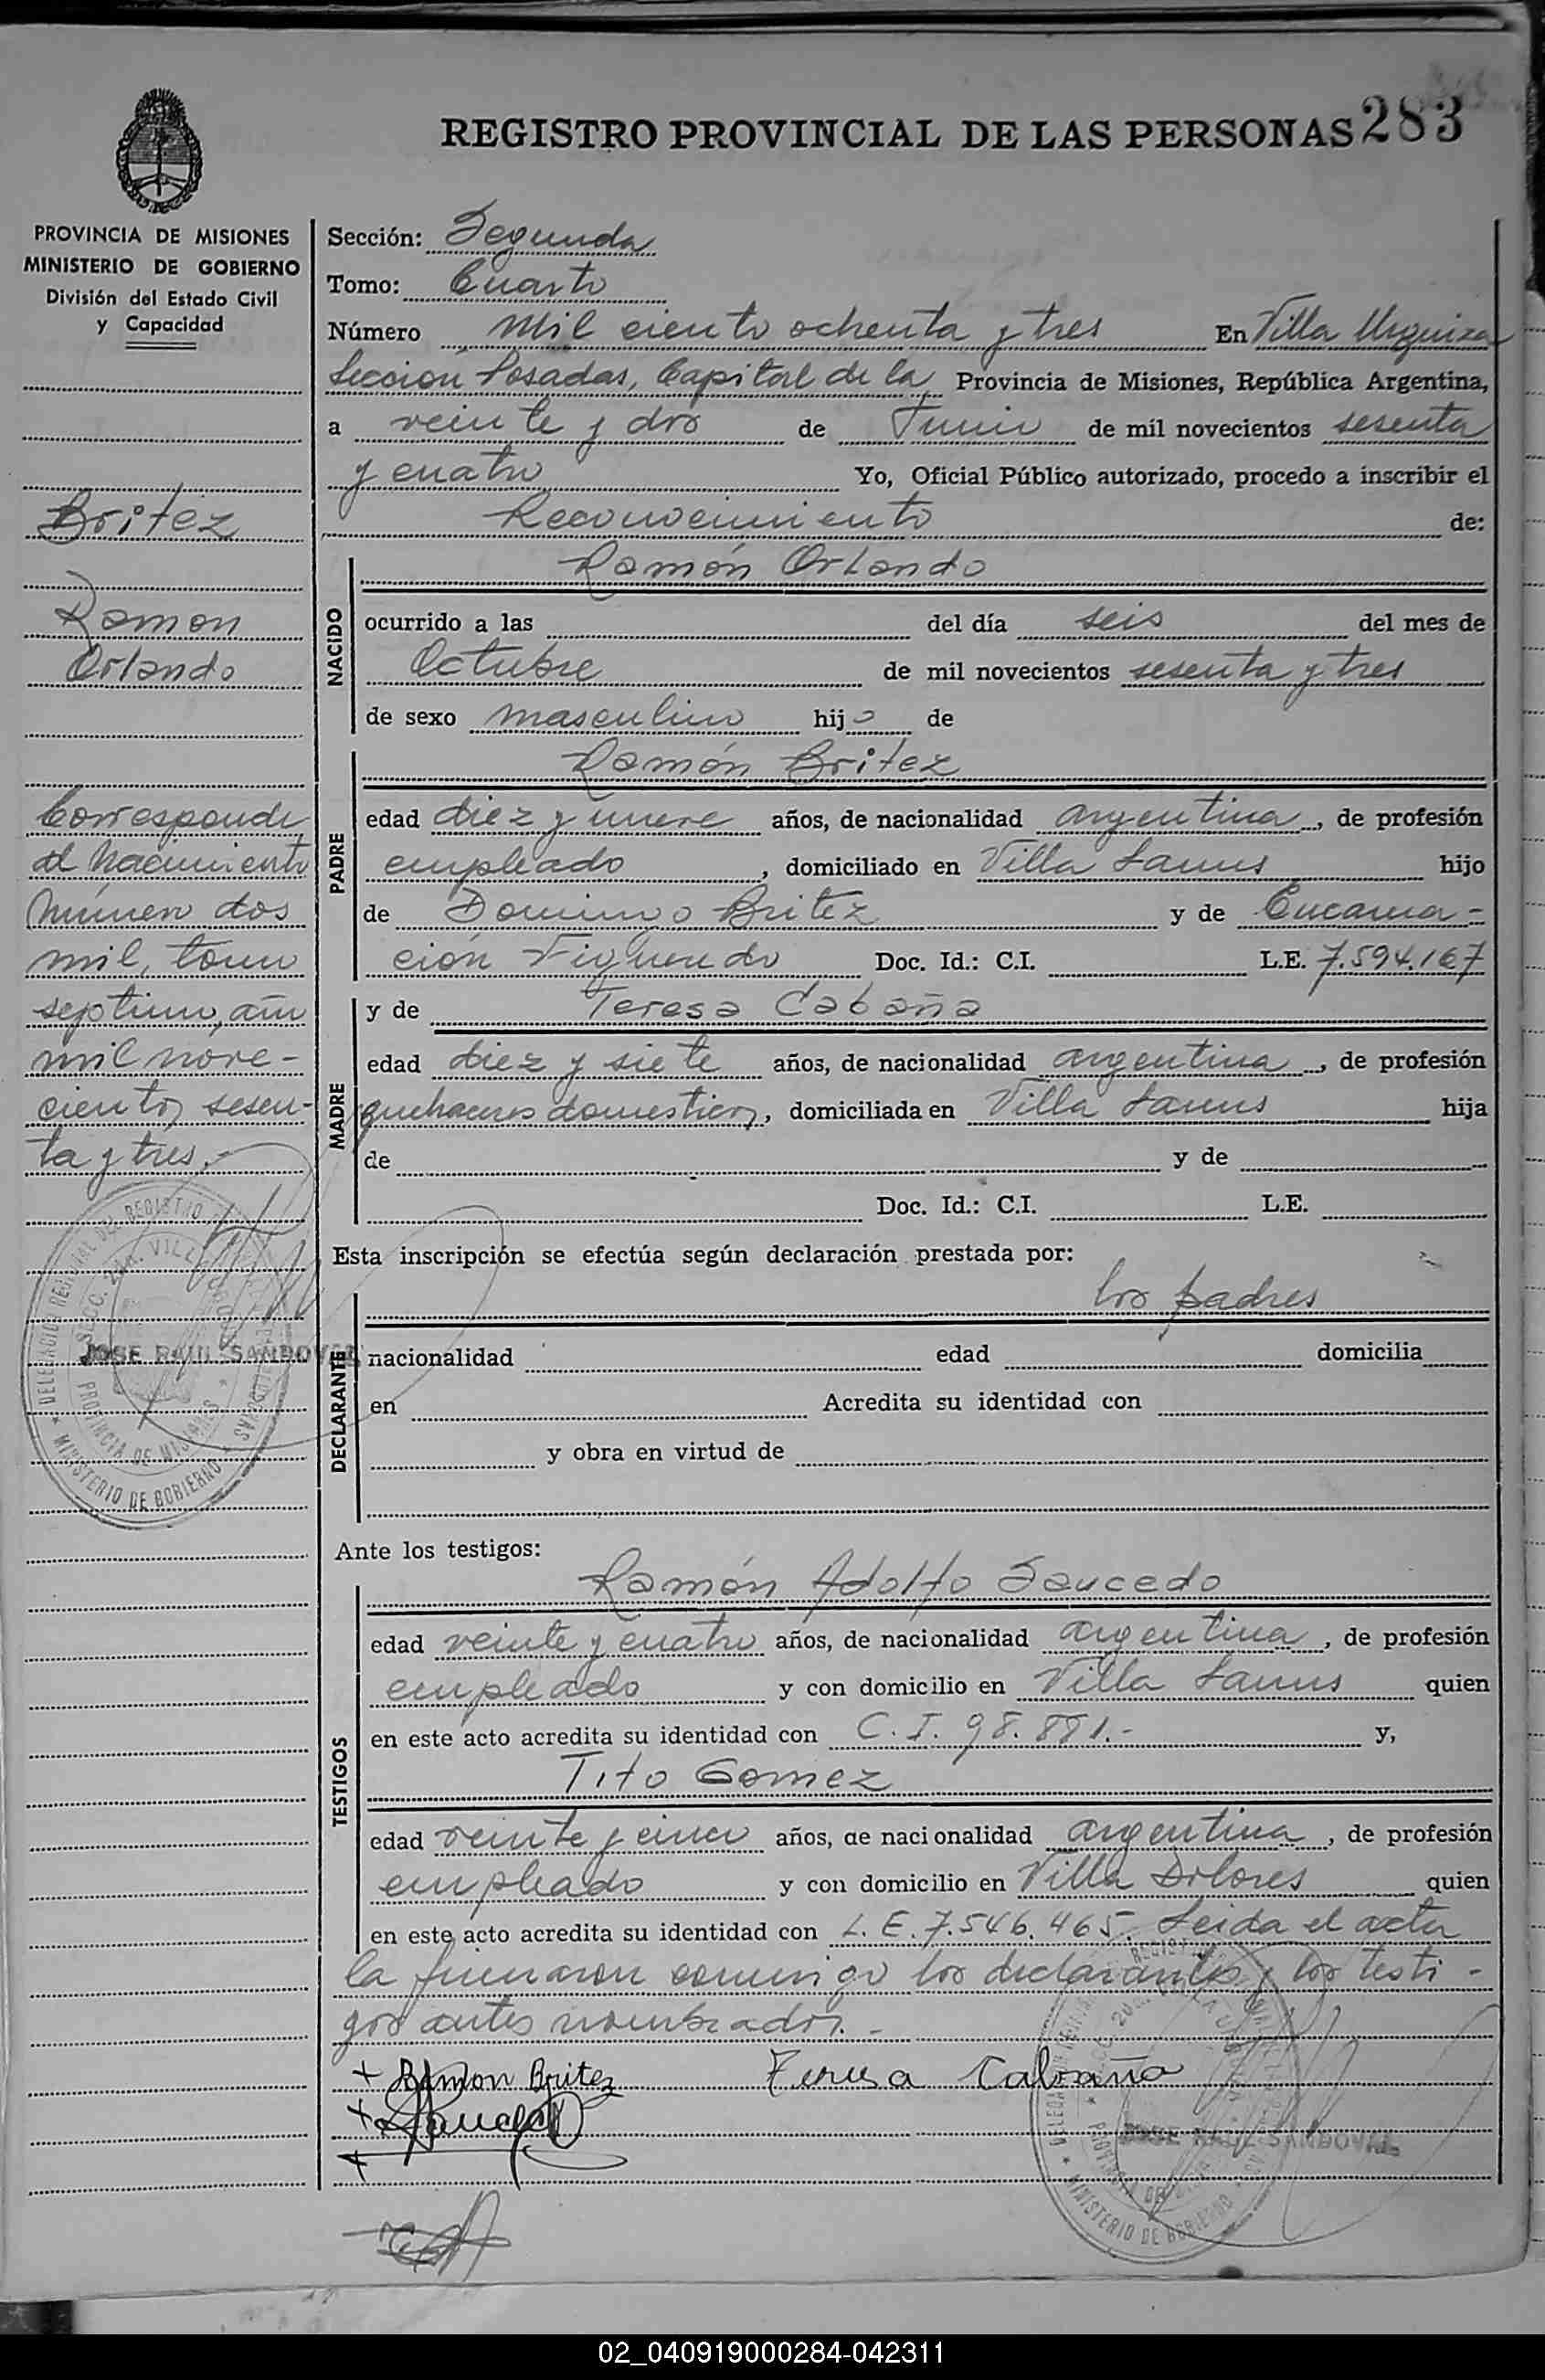 REGISTRO PROVINCIAL DE LAS PERSONAS 283
PROVINCIA DE MISIONES
MINISTERIO DE GOBIERNO
División del Estado Civil
y Capacidad
Britez
Ramon
Orlando
Corresponde
al Nacimiento
Número dos
mil, tomo
septimo, año
mil nove-
cientos sesen-
ta y tres.-
JOSE RAUL SANDOVAL
Sección: Segunda
Tomo: Cuarto
Número mil ciento ochenta y tres En Villa Urquiza
Sección Posadas, Capital de la Provincia de Misiones, República Argentina,
a veinte y dos de Junio de mil novecientos sesenta
y cuatro Yo, Oficial Público autorizado, procedo a inscribir el
Reconocimiento de:
NACIDO
Ramón Orlando
ocurrido a las del día seis del mes de
Octubre de mil novecientos sesenta y tres
de sexo masculino hijo de
PADRE
Ramón Britez
edad diez y nueve años, de nacionalidad argentina, de profesión
empleado, domiciliado en Villa Lanus hijo
de Domingo Britez y de Encarna-
ción Figueredo Doc. Id.: C.I. L.E. 7.594.167
MADRE
y de Teresa Cabaña
edad diez y siete años, de nacionalidad argentina, de profesión
quehaceres domesticos, domiciliada en Villa Lanus hija
de y de
Doc. Id.: C.I. L.E.
Esta inscripción se efectúa según declaración prestada por:
DECLARANTE
los padres
nacionalidad edad domicilia
en Acredita su identidad con
y obra en virtud de
Ante los testigos:
TESTIGOS
Ramón Adolfo Saucedo
edad veinte y cuatro años, de nacionalidad argentina, de profesión
empleado y con domicilio en Villa Lanus quien
en este acto acredita su identidad con C.I. 98.881.- y,
Tito Gomez
edad veinte y cinco años, de nacionalidad argentina, de profesión
empleado y con domicilio en Villa Dolores quien
en este acto acredita su identidad con L.E. 7.546.465. Leida el acta
la firmaron conmigo los declarantes y los testi-
gos antes nombrados.-
+ Ramon Britez Teresa Cabaña
JOSE RAUL SANDOVAL
02_040919000284-042311